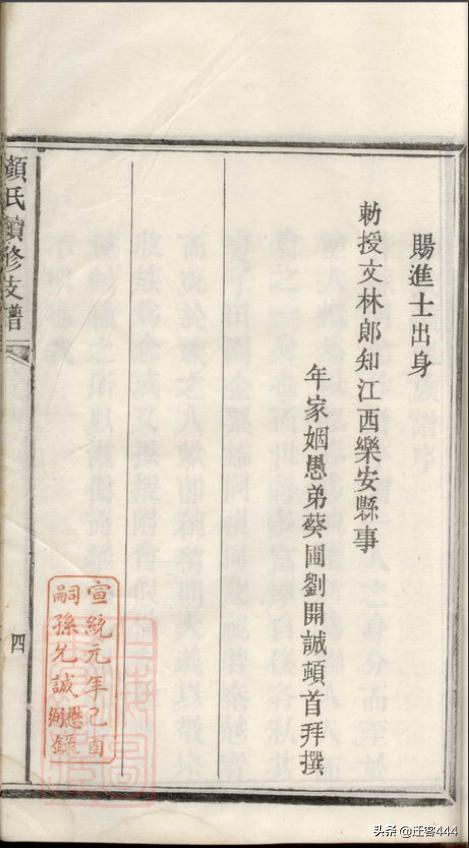 賜進士出身
勅授文林郎知江西樂安縣事
年家姻愚弟蔡圃劉開誠頓首拜撰
顏氏續修支譜
四
宣統元年己酉
嗣孫允誠
頭条 @迂客444